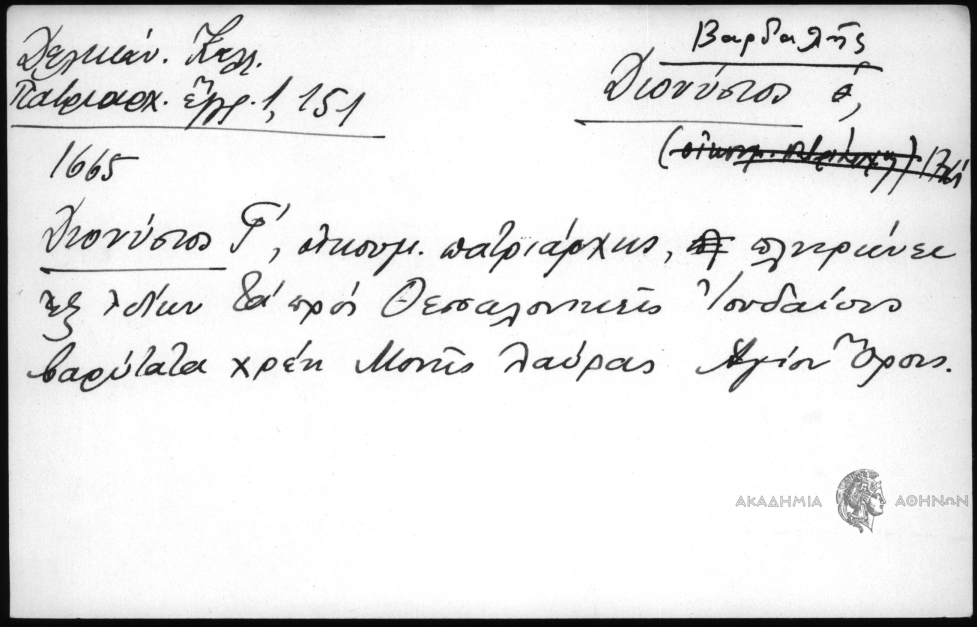 Δελικάν. Καλλ.
Πατριαρχ. ἔγγρ. 1, 151
Βαρδαλῆς
Διονύσιος ὁ,
1665
Διονύσιος Γ', οἰκουμ. πατριάρχης, πληρώνει
ἐξ ἰδίων τά πρός Θεσσαλονικεῖς Ἰουδαίους
βαρύτατα χρέη Μονῆς Λαύρας Ἁγίου Ὄρους.
ΑΚΑΔΗΜΙΑ ΑΘΗΝΩΝ